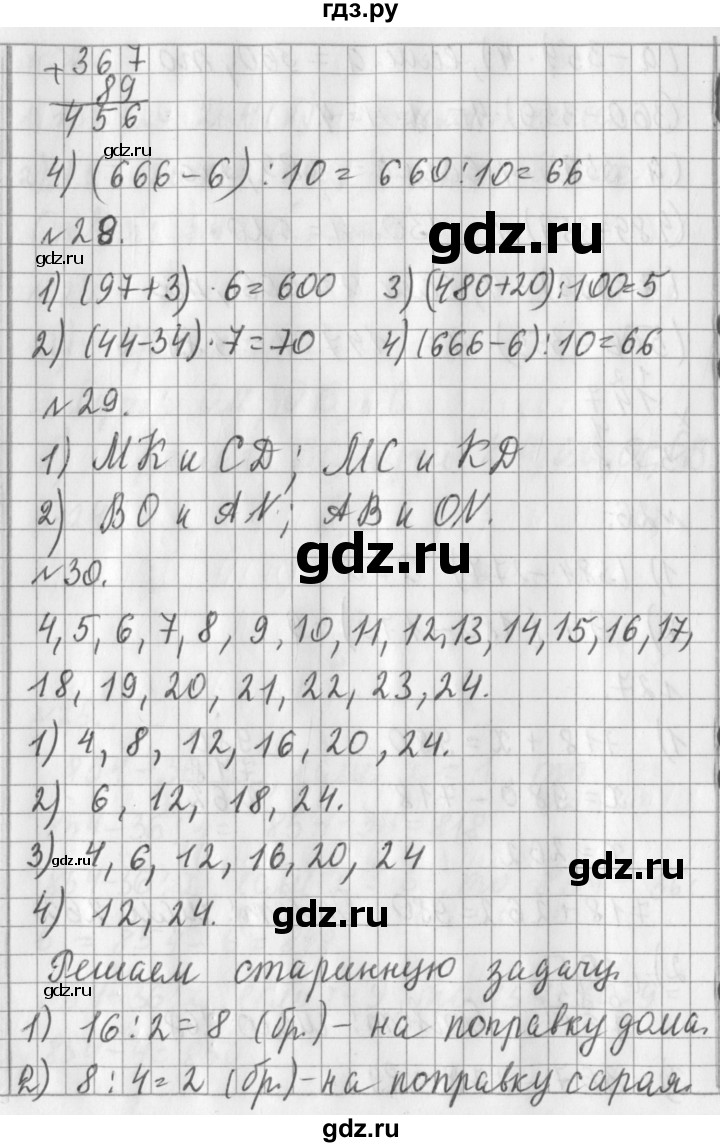 гдз.ру
+367
89
456
gdz.ru
4) (666-6) : 10 = 660 : 10 = 66
№28.
gdz.ru
gdz.ru
1) (97+3) · 6 = 600 3) (480+20) : 100 = 5
2) (44-34) · 7 = 70 4) (666-6) : 10 = 66
№29.
1) МК и CD; МС и KD
2) BO и AN; AB и ON.
gdz.ru
№30.
4, 5, 6, 7, 8, 9, 10, 11, 12, 13, 14, 15, 16, 17,
18, 19, 20, 21, 22, 23, 24.
1) 4, 8, 12, 16, 20, 24.
2) 6, 12, 18, 24.
3) 4, 6, 12, 16, 20, 24
gdz.ru
gdz.ru
4) 12, 24.
gdz.ru
Решаем старинную задачу.
gdz.ru
1) 16 : 2 = 8 (бр.) - на поправку дома.
2) 8 : 4 = 2 (бр.) - на поправку сарая.